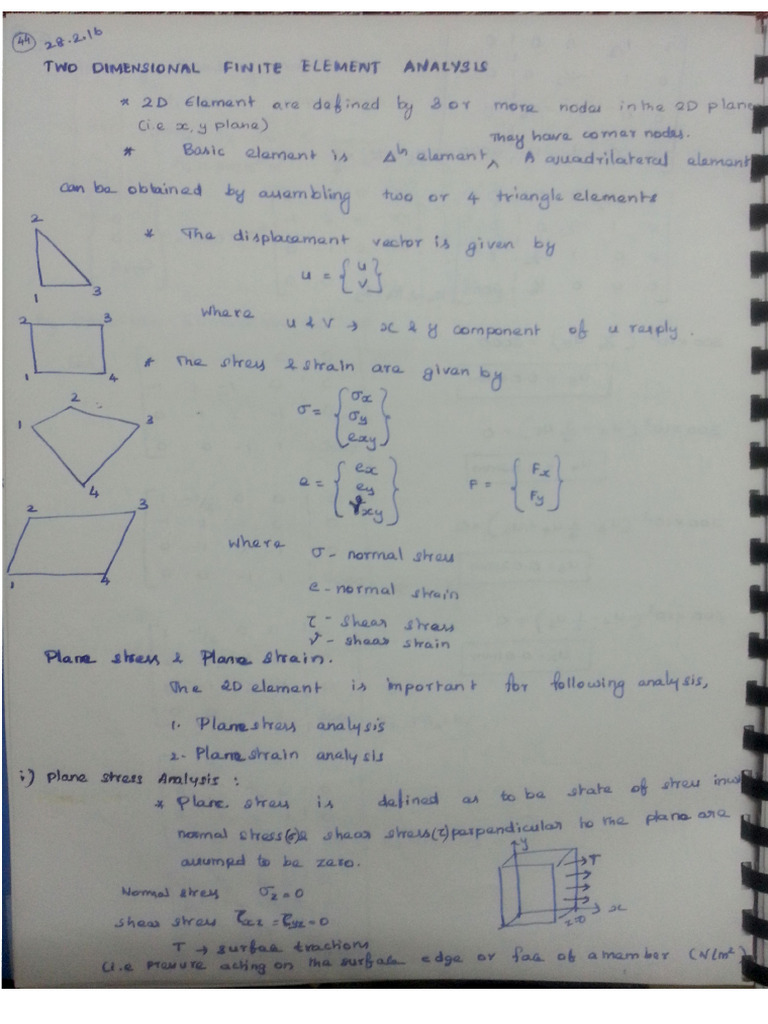 44 28.2.16
TWO DIMENSIONAL FINITE ELEMENT ANALYSIS
* 2D Element are defined by 3 or more nodes in the 2D plane
(i.e x, y plane)
They have corner nodes.
* Basic element is Δle element^ A quadrilateral element
can be obtained by assembling two or 4 triangle elements
2
1 3
* The displacement vector is given by
u = {u
v}
where
u & v → x & y component of u resply.
2 3
1 4
* The stress & strain are given by
σ = {σx
σy
exy}
2
1 3
4
e = {ex
ey
γxy}
F = {Fx
Fy}
2 3
1 4
where
σ - normal stress
e - normal strain
τ - shear stress
γ - shear strain
Plane stress & Plane strain.
The 2D element is important for following analysis,
1. Plane stress analysis
2. Plane strain analysis
i) Plane stress Analysis :
* Plane stress is defined as to be state of stress
normal stress(σ)& shear stress(τ) perpendicular to the plane are
assumed to be zero.
y
T
x
z=0
Normal stress σz = 0
shear stress τxz = τyz = 0
T → surface tractions
(i.e pressure acting on the surface edge or face of a member (N/m²)